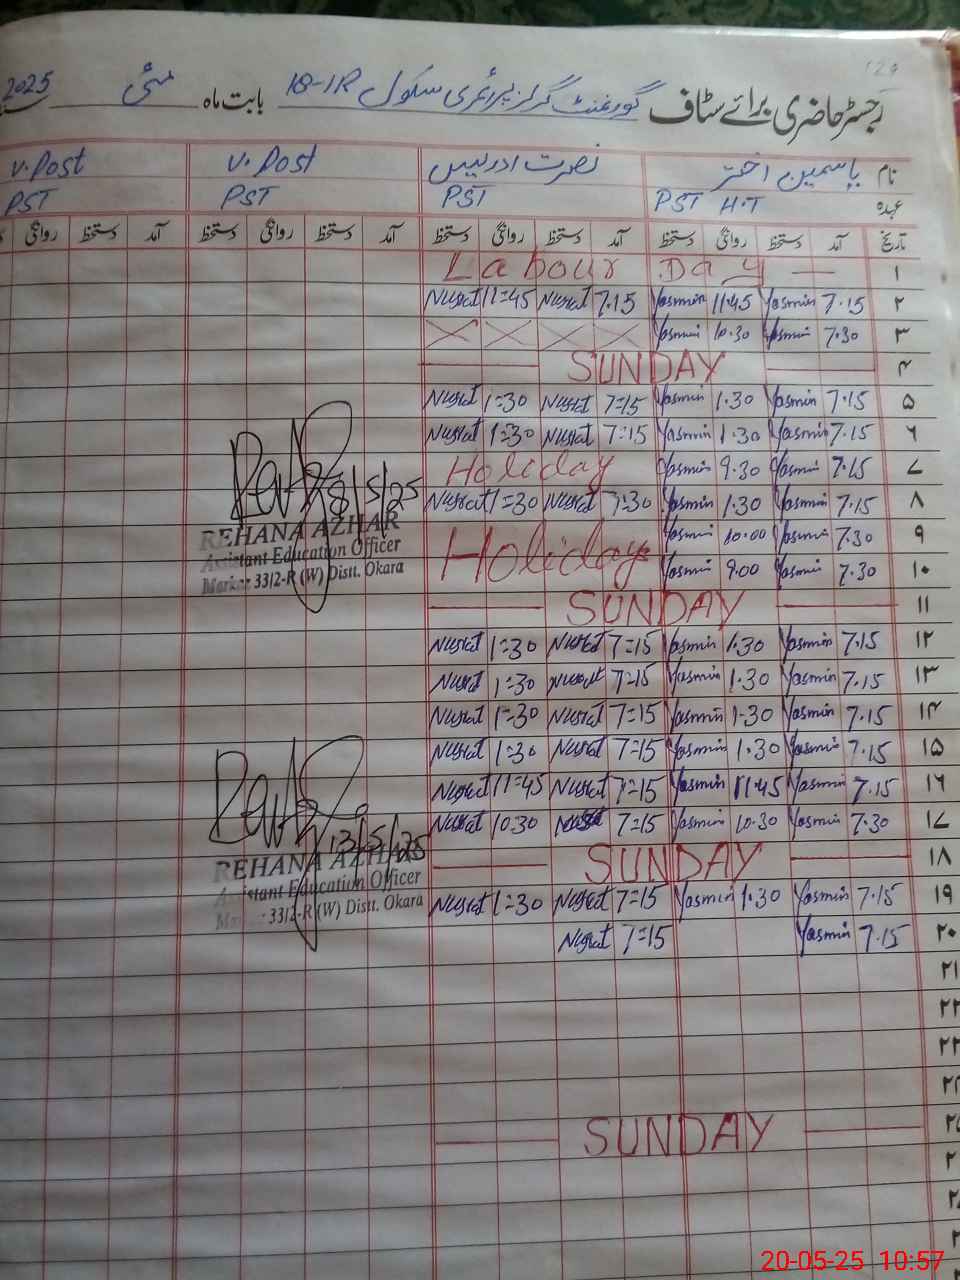 رجسٹر حاضری برائے سٹاف گورنمنٹ گرلز پرائمری سکول 18-1R بابت ماہ مئی 2025
نام یاسمین اختر نصرت ادریس V. Post V. Post
عہدہ PST H.T PST PST PST
تاریخ آمد دستخط روانگی دستخط آمد دستخط روانگی دستخط آمد دستخط روانگی دستخط آمد دستخط روانگی
۱ Labour Day
۲ 7.15 Yasmin 11.45 Yasmin 7.15 Nusrat 11=45 Nusrat
۳ 7.30 Yasmin 10.30 Yasmin
۴ SUNDAY
۵ 7.15 Yasmin 1.30 Yasmin 7=15 Nusrat 1=30 Nusrat
۶ 7.15 Yasmin 1.30 Yasmin 7=15 Nusrat 1=30 Nusrat
۷ 7.15 Yasmin 9.30 Yasmin Holiday
۸ 7.15 Yasmin 1.30 Yasmin 7:30 Nusrat 1=30 Nusrat
۹ 7.30 Yasmin 10.00 Yasmin Holiday
۱۰ 7.30 Yasmin 9.00 Yasmin
۱۱ SUNDAY
۱۲ 7.15 Yasmin 1.30 Yasmin 7=15 Nusrat 1=30 Nusrat
۱۳ 7.15 Yasmin 1.30 Yasmin 7=15 Nusrat 1=30 Nusrat
۱۴ 7.15 Yasmin 1.30 Yasmin 7=15 Nusrat 1=30 Nusrat
۱۵ 7.15 Yasmin 1.30 Yasmin 7=15 Nusrat 1=30 Nusrat
۱۶ 7.15 Yasmin 11.45 Yasmin 7=15 Nusrat 11=45 Nusrat
۱۷ 7.30 Yasmin 10.30 Yasmin 7=15 Nusrat 10.30 Nusrat
۱۸ SUNDAY
۱۹ 7.15 Yasmin 1.30 Yasmin 7=15 Nusrat 1=30 Nusrat
۲۰ 7.15 Yasmin 7=15 Nusrat
۲۱
۲۲
۲۳
۲۴
۲۵ SUNDAY
8/5/25
REHANA AZHAR
Assistant Education Officer
Markaz 33/2-R (W) Distt. Okara
13/5/25
REHANA AZHAR
Assistant Education Officer
Markaz 33/2-R (W) Distt. Okara
20-05-25 10:57